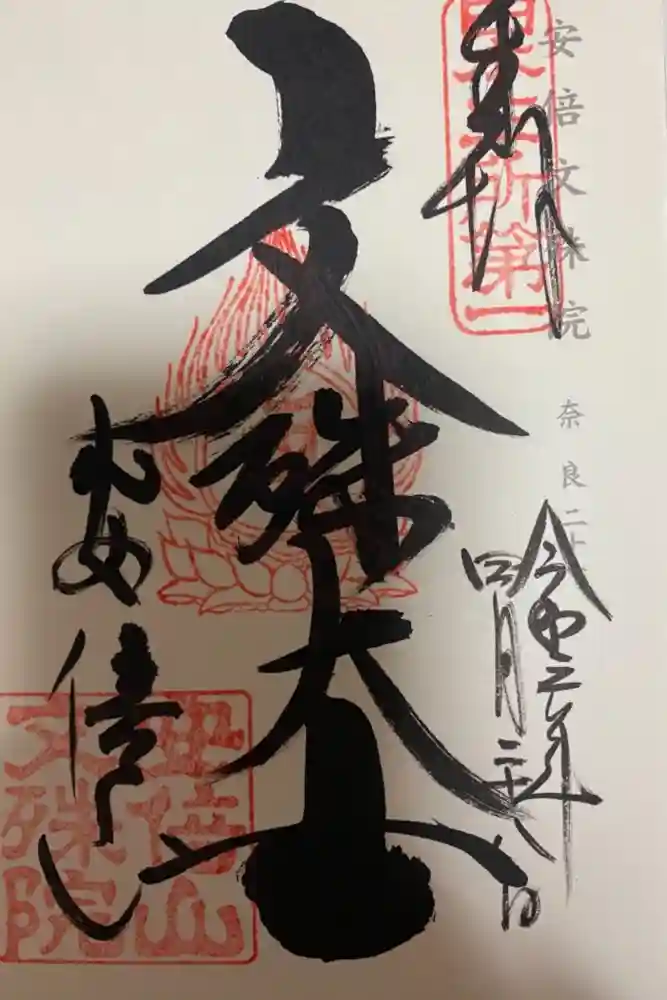 安倍文殊院
奈良
第一
奉拝
文殊大士
令和三年
四月二十八日
安倍山
安倍山
文殊院